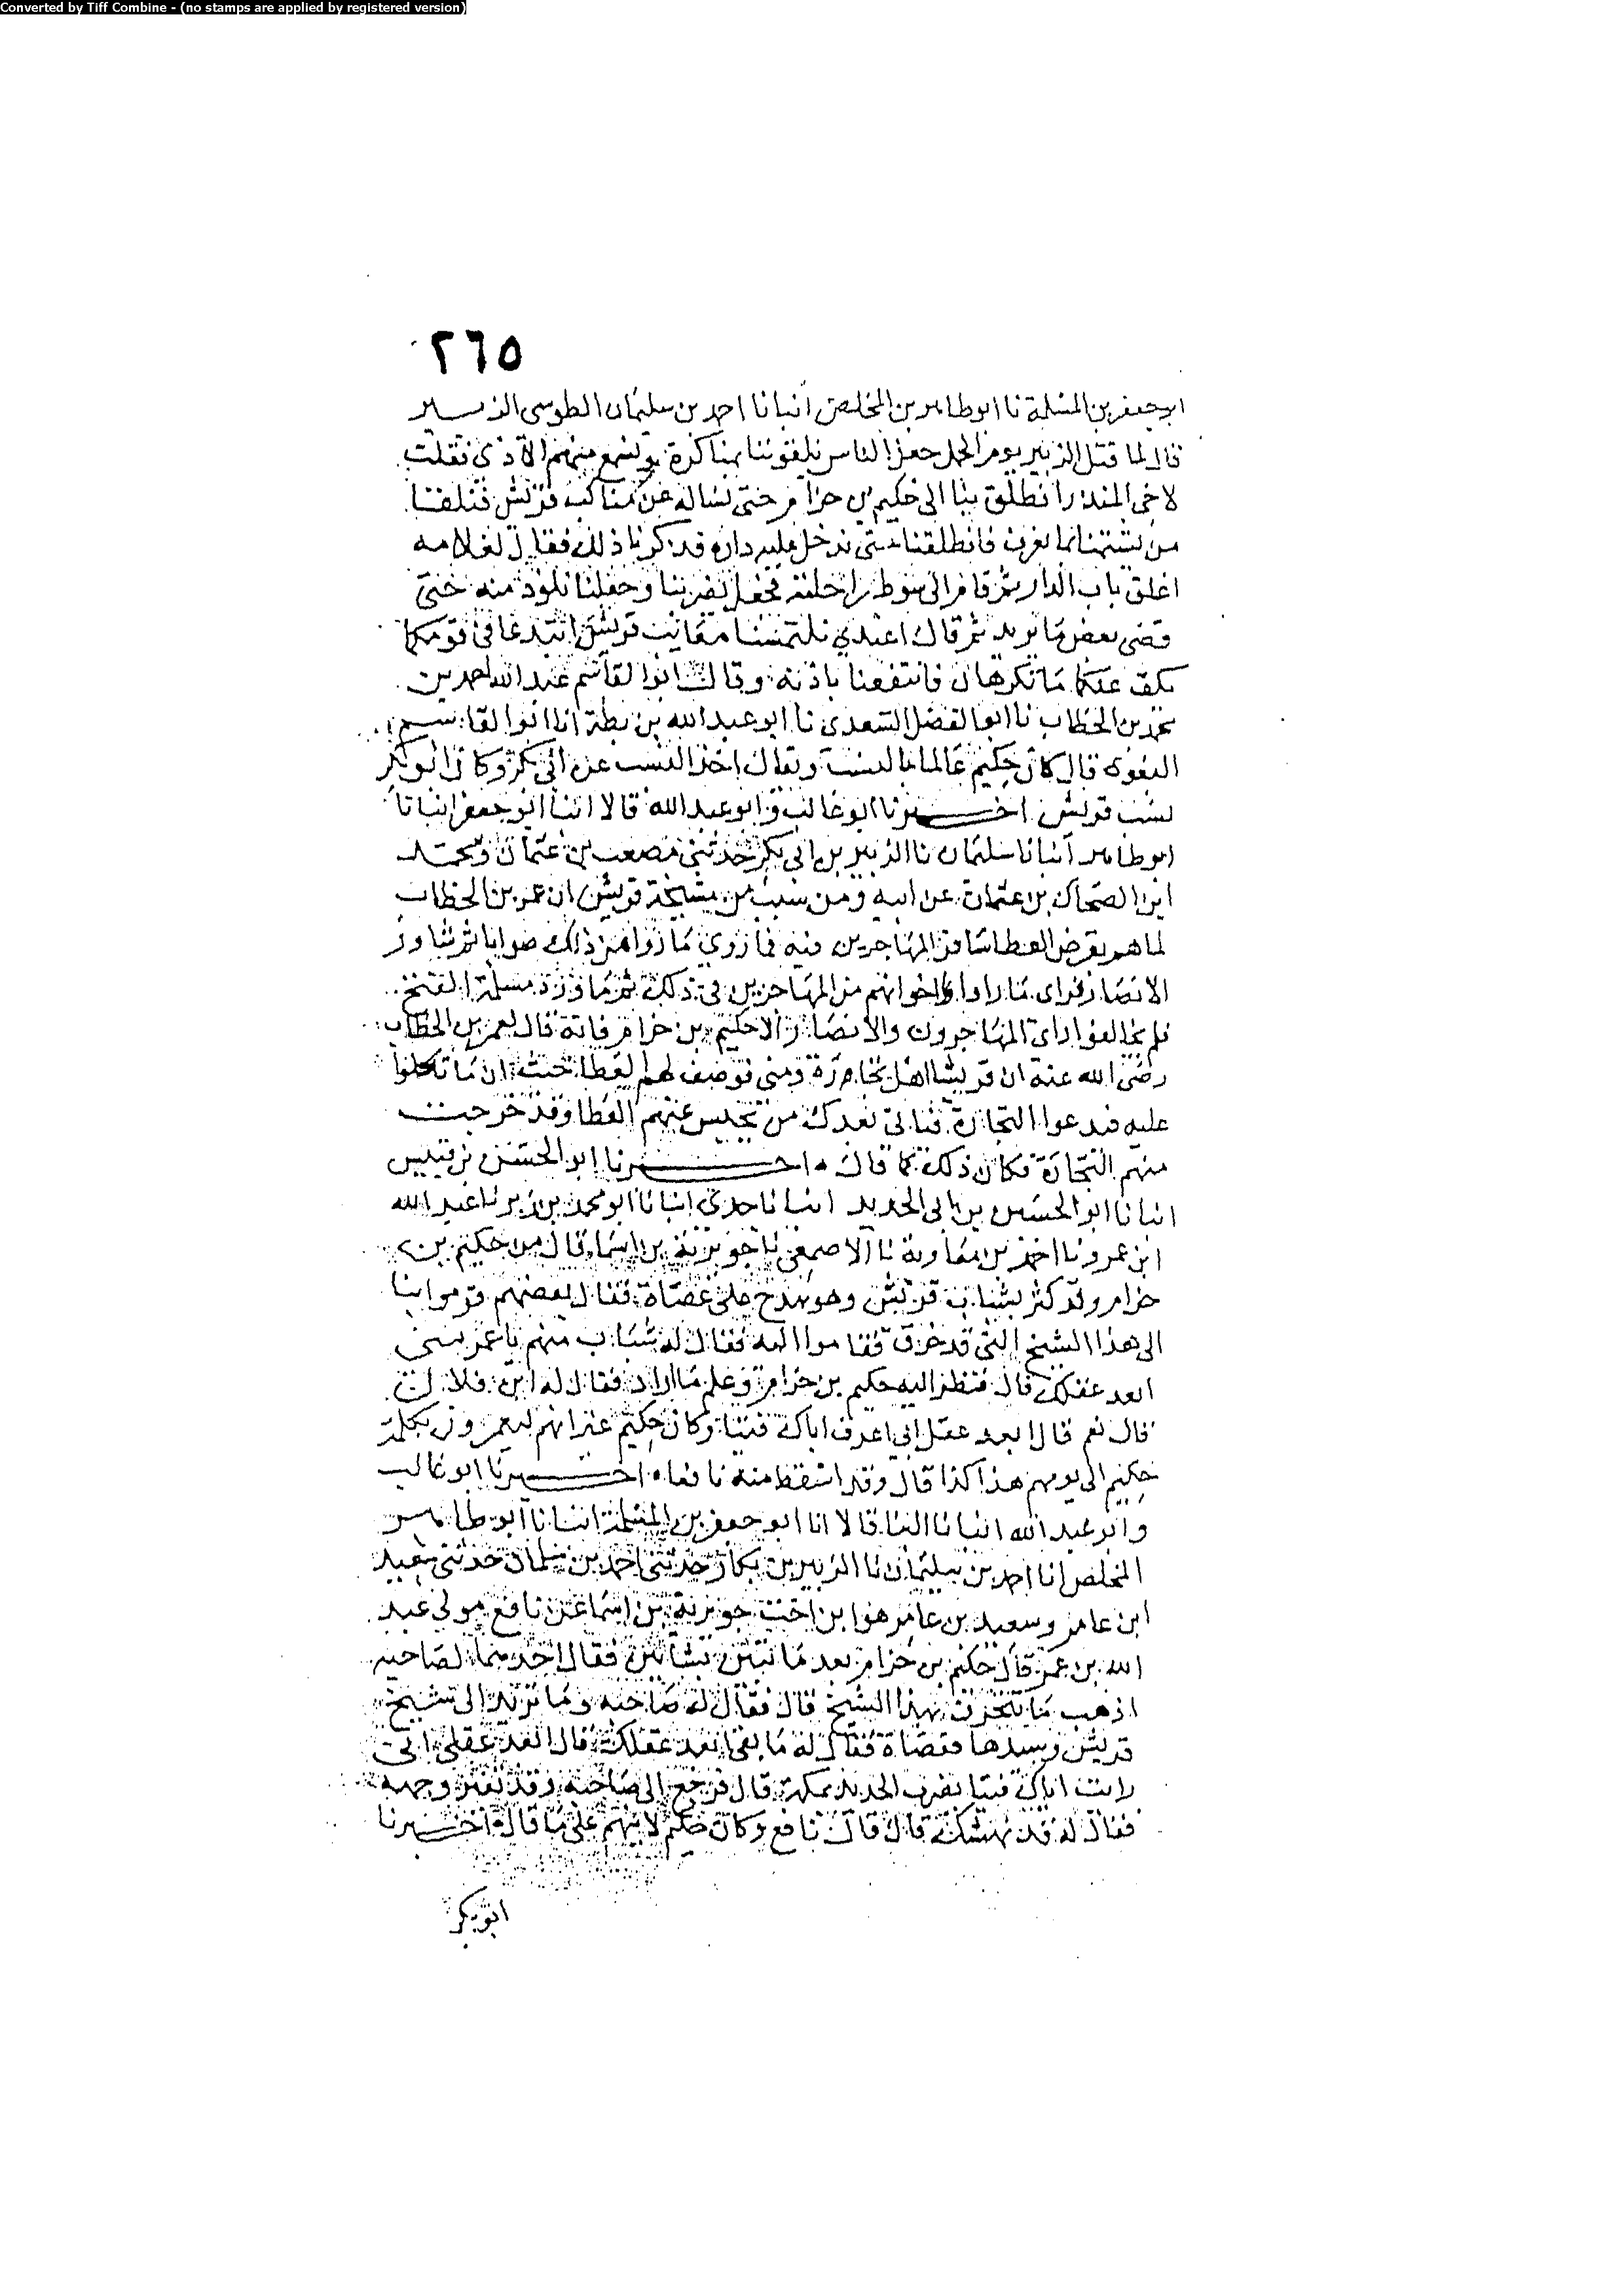 Converted by Tiff Combine - (no stamps are applied by registered version)
٢٦٥
ابو جعفر بن المسلمة نا ابو طاهر بن المخلص انبانا احمد بن سليمان الطوسي الزبير
قال لما قتل الزبير يوم الجمل جعل الناس يلقوننا بما نكره ونسمع منهم الاذى فقلت
لاخي المنذر انطلق بنا الى حكيم بن حزام حتى نساله عن مثالب قريش فنلقى
من يشتمنا بما نعرف فانطلقنا حتى ندخل عليه داره فذكرنا ذلك فقال لغلامه
اغلق باب الدار ثم قام الى سوط راحلته فجعل يضربنا وجعلنا نلوذ منه حتى
قضى بعض ما يريد ثم قال اعندي تلتمسا معايب قريش ايتدعا في قومكما
يكف عنكما ما تكرهان فانتفعنا باذنه وقال ابو القاسم عبد الله احمد بن
محمد بن الخطاب نا ابو الفضل السعدي نا ابو عبد الله بن بطة انا ابو القاسم
البغوي قال كان حكيم عالما بالنسب ويقال اخذ النسب عن ابي بكر وكان ابو بكر
نسب قريش اخبرنا ابو غالب وابو عبد الله قالا انبا ابو جعفر انبانا
ابو طاهر انبانا سليمان نا الزبير بن ابي بكر حدثني مصعب بن عثمان ومحمد
ابن الضحاك بن عثمان عن ابيه ومن سبب من مشيخة قريش ان عمر بن الخطاب
لما هم بفرض العطا شاور المهاجرين فيه فما زوى ما راوا من ذلك صوابا ثم شاور
الانصار فراى ما راوا واخوانهم من المهاجرين في ذلك ثم شاور مسلمة الفتح
فلم يخالفوا راي المهاجرون والانصار الا حكيم بن حزام فانه قال لعمر بن الخطاب
رضي الله عنه ان قريشا اهل تجارة ومتى فرضت لهم العطا خشيت ان ما تكلوا
عليه فيدعوا التجارة فياتي بعدك من يحبس عنهم العطا وقد خرجت
منهم التجارة فكان ذلك كما قال اخبرنا ابو الحسن بن قبيس
انبانا ابو الحسن بن ابي الحديد انبانا جدي انبانا ابو محمد بن زبر نا عبد الله
ابن عمرو نا احمد بن معاوية نا الاصمعي نا جويرية بن اسما قال مر حكيم بن
حزام وقد كثر بشباب قريش وهو يهدج على عصاة فقال بعضهم قوموا بنا
الى هذا الشيخ التي قد خرف فقاموا اليه فقال له شاب منهم يا عم متى
ابعد عقلك قال فنظر اليه حكيم بن حزام وعلم ما اراد فقال له ابن فلان
قال نعم قال ابعد عقل اني اعرف اباك قينا وكان حكيم عندانهم ليعيرون بكلمة
حكيم الى يومهم هذا كذا قال وقد اسقط منه نافعا اخبرنا ابو غالب
وابو عبد الله انبانا البنا قالا انا ابو جعفر بن المسلمة انبانا ابو طاهر
المخلص انا احمد بن سليمان نا الزبير بن بكار حدثني احمد بن سلمان حدثني سعيد
ابن عامر وسعيد بن عامر هو ابن اخت جويرية بن اسما عن نافع مولى عبد
الله بن عمر قال حكيم بن حزام بعد ما نبتين بشابين فقال احدهما لصاحبه
اذهب بنا نتخرف بهذا الشيخ قال فقال له صاحبه وما تريد الى شيخ
قريش وسيدها فعصاه فقال له ما بقى ابعد عقلك قال ابعد عقلي اني
رايت اباك قينا يضرب الحديد بمكة قال فرجع الى صاحبه وقد تغير وجهه
فقال له قد نهيتك قال قال نافع وكان حكيم لا يتهم على ما قال اخبرنا
ابو بكر